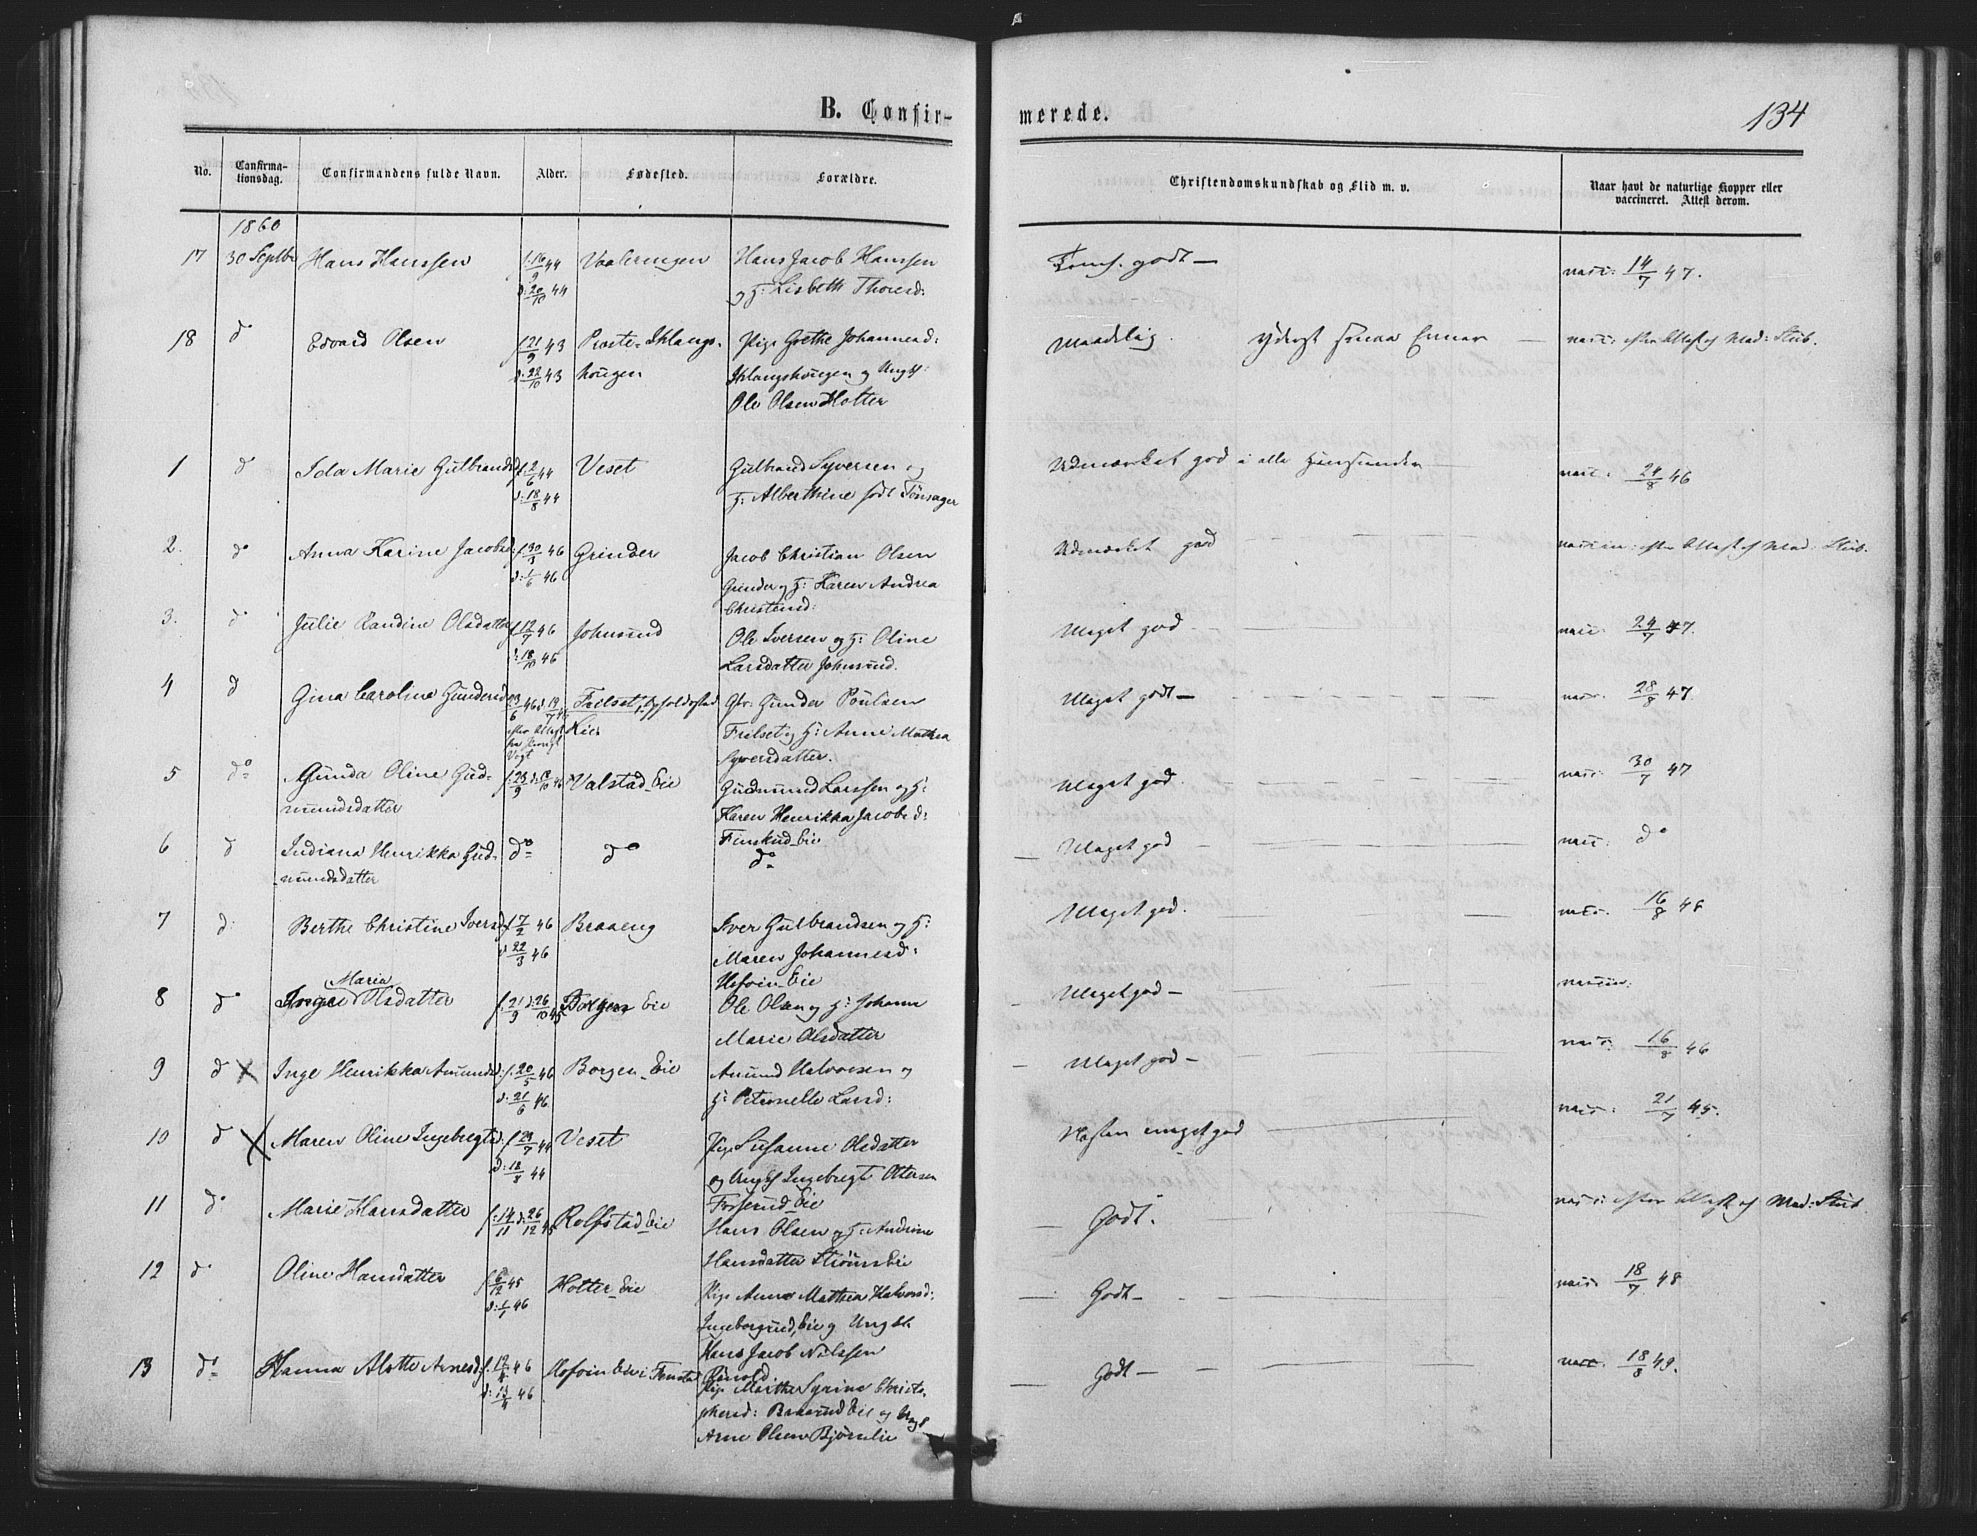 B. Confir-
merede.
134
No. Confirma-
tionsdag. Confirmandens fulde Navn. Alder. Fødested. Forældre.
Christendomskundskab og Flid m. v.
Naar havt de naturlige Kopper eller
vaccineret. Attest derom.
1860
17 30 Septbr Hans Hanssen f. 16/9 44 Vaaleringen Hans Jacob Hanssen godt — vacc: 14/7 47.
d: 20/10 44 og H: Lisbeth Thoresd:
18 do Edvard Olsen f 21/9 43 Pige Grethe Johannesd: Maadelig. vacc: efter Attest af Med: Stub.
d: 22/10 43 hougen og Ungk:
Ole Olsen Holter
1 d Ida Marie Gulbrandsd f 2/6 44 Veset Gulbrand Syversen og Udmærket god i alle vacc: 24/8 46
d: 18/8 44 H: Alberthine født Tønsager
2. do Anna Karine Jacobsd: f. 30/3 46 Grinder Jacob Christian Olsen Udmærket god vaccin: efter Attest af Med: Stub.
d: 1/6 46 Grinder og H: Karen Andrea
Christensd:
3. do Julie Randine Olsdatter f. 12/7 46 Johnsrud Ole Iversen og H: Oline Meget god vacc: 24/7 47.
d: 18/10 46 Larsdatter Johnsrud.
4 d Gina Caroline Gundersd 23/6 46 d. 19/7 46 Frilset, Gbr: Gunder Poulsen Meget godt — vacc: 28/8 47
efter Attest Frilset og H: Anne Mathea
Vogt Syversdatter.
5 do Gunda Oline Gud- f. 23/9 Valstad Eie Gudmund Larssen og H: Meget god. vacc: 30/7 47
mundsdatter Karen Henrikka Jacobsd:
Finskud Eie
6 d Indiana Henrikka Gud- do do do Meget god vacc: do
mundsdatter
7 d: Berthe Christine Iversd f 7/2 46 Braaeng Iver Gulbrandsen og H: Meget god. vacc: 16/8 48
d 22/3 46 Maren Johannesd:
Hofvin Eie
Maria
8 do Inger Olsdatter f. 21/9 d: 26/10 45 Borgen Eie Ole Olsen og H: Johanne Meget god — vaccin:
Marie Olsdatter
9 d X Inge Henrikka Amundsd: f. 20/5 46 Borgen Eie Amund Halvorsen og Meget god — vacc: 16/8 46
d: 21/6 46. H: Petronelle Larsd:
10 d X Maren Oline Ingebregtsd. f 29/7 44 Veset Pige Susanne Olsdatter Næsten meget god vacc: 21/7 45.
d: 18/8 44 og Ungk Ingebregt Ottersen
Fosserud Eie
11 do Marie Hansdatter f. 14/11 d. 26/12 45 Rolfstad Eie Hans Olsen og H: Andrine Godt. vacc: efter Attest af Med: Stub.
Hansdatter Strøms Eie
12 do Oline Hansdatter f 6/12 45 Holter Eie Pige Anne Mathea Halvorsd: Godt — vacc: 18/7 48
d: 1/1 46 Ingeborgrud Eie og Ungk
Hans Jacob Nilssen
13 do Hanna Alette Arnesd f. 46 Hofvin Eie i Pige Marthe Syrine Christo- Godt — vacc: 18/8 49.
d: 46 phersd: Eie og Ungk
Arne Olsen Bjørnlie